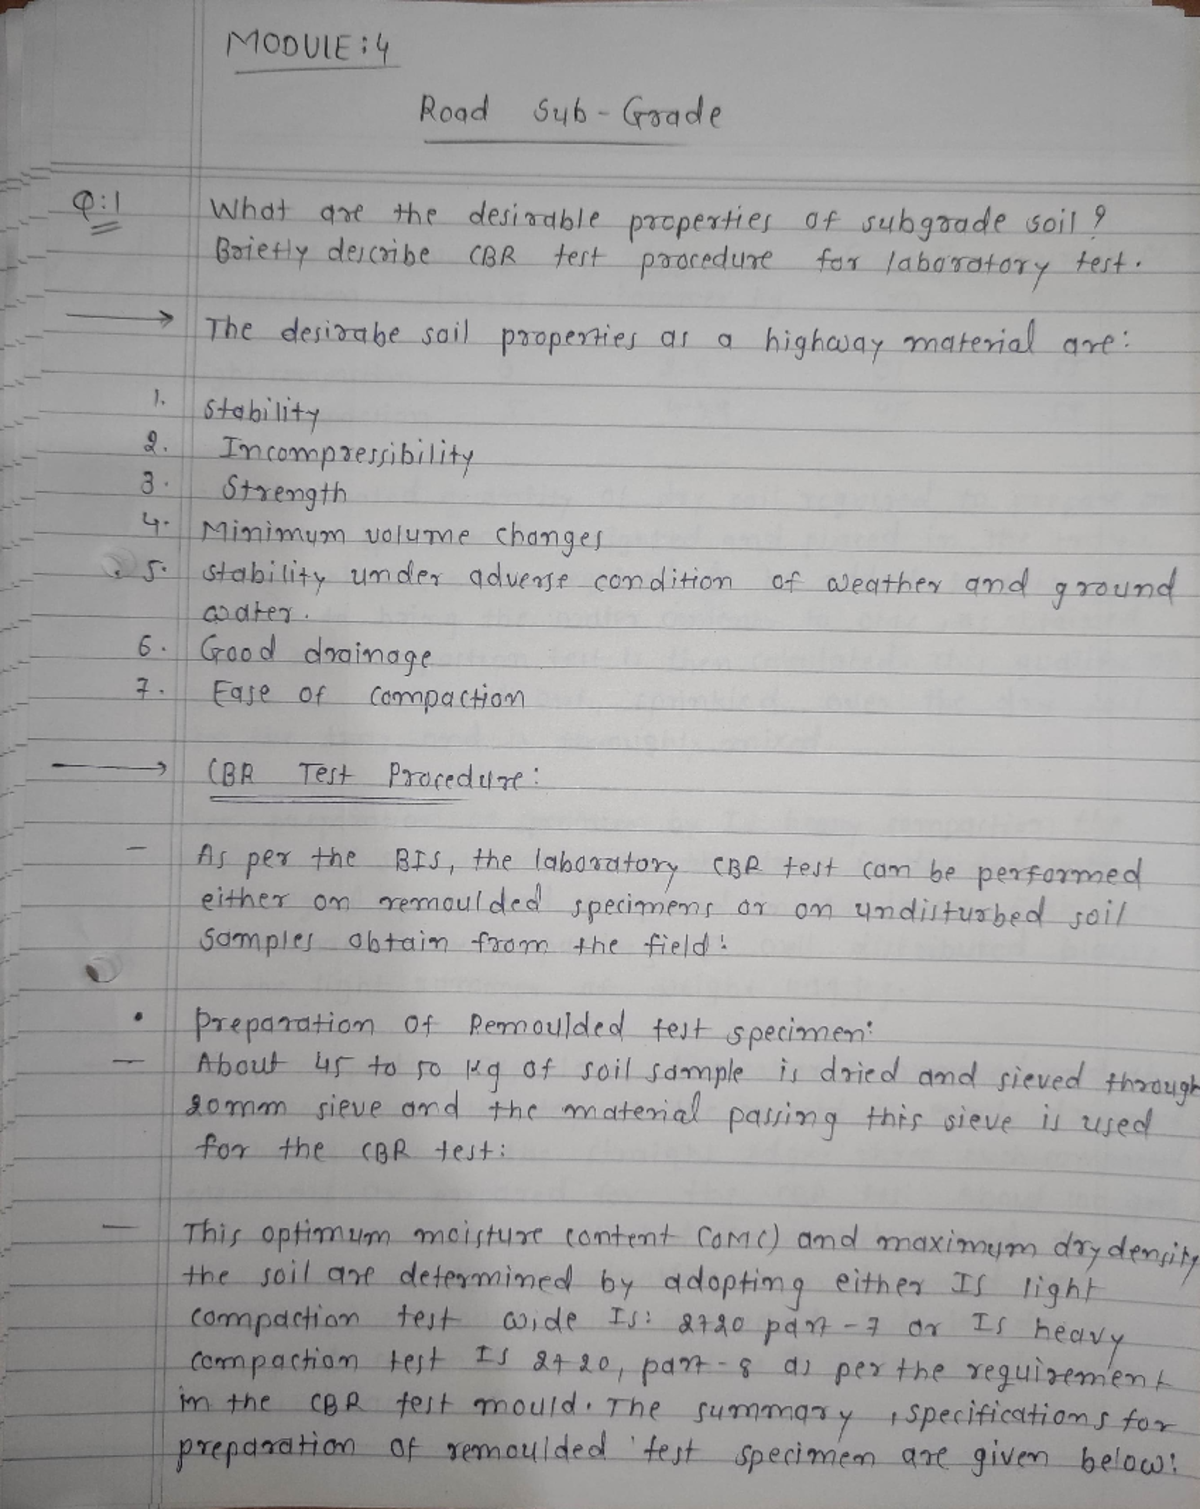 MODULE:4
Road Sub-Grade
Q:1 What are the desirable properties of subgrade soil?
Briefly describe CBR test procedure for laboratory test.
→ The desirabe soil properties as a highway material are:
1. Stability
2. Incompressibility
3. Strength
4. Minimum volume changes
5. Stability under adverse condition of weather and ground
water.
6. Good drainage
7. Ease of compaction
→ CBR Test Procedure:
- As per the BIS, the laboratory CBR test can be performed
either on remoulded specimens or on undisturbed soil
samples obtain from the field:
• Preparation of Remoulded test specimen:
- About 45 to 50 kg of soil sample is dried and sieved through
20mm sieve and the material passing this sieve is used
for the CBR test:
- This optimum moisture content (OMC) and maximum dry density
the soil are determined by adopting either IS light
compaction test wide IS: 2720 part-7 or IS heavy
compaction test IS 2720, part-8 as per the requirement
in the CBR test mould. The summary, specifications for
preparation of remoulded test specimen are given below: